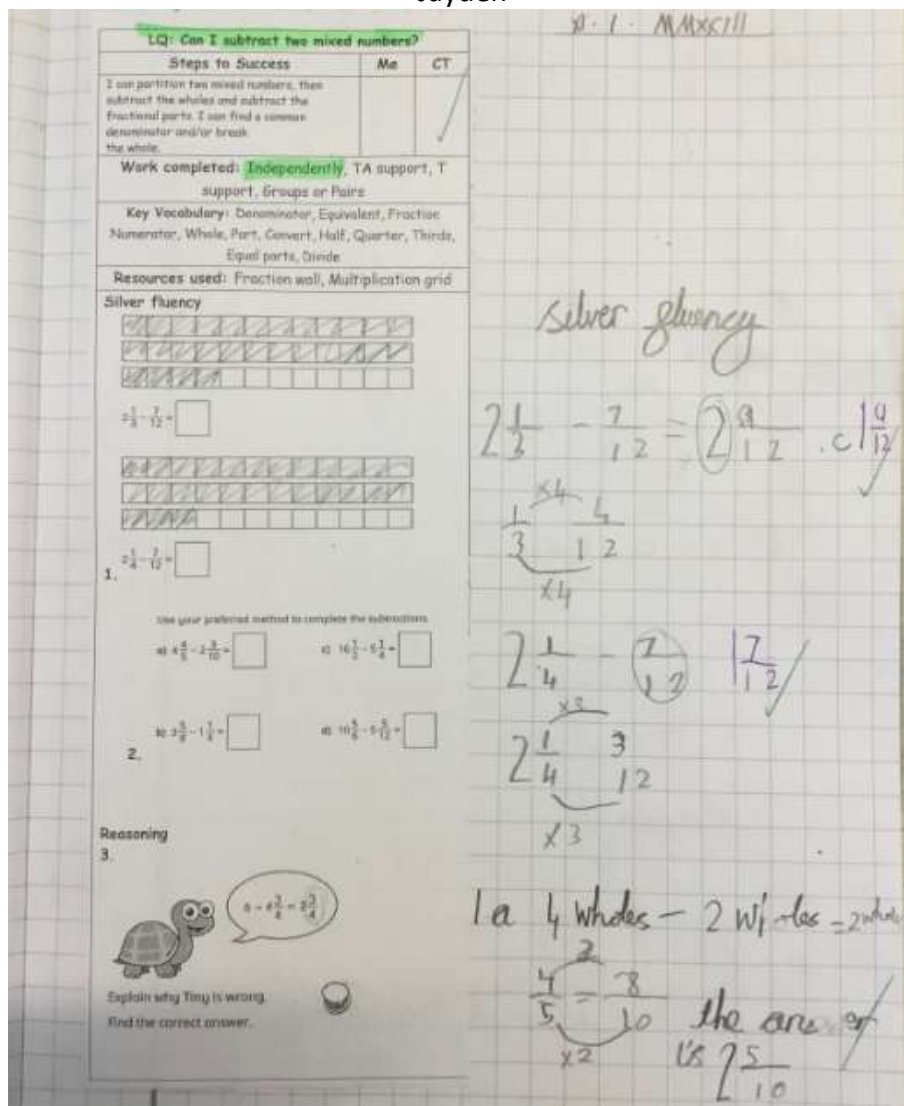 Jayden
LQ: Can I subtract two mixed numbers?
Steps to Success Me CT
I can partition two mixed numbers, then
subtract the wholes and subtract the
fractional parts. I can find a common
denominator and/or break
the whole.
Work completed: Independently, TA support, T
support, Groups or Pairs
Key Vocabulary: Denominator, Equivalent, Fraction
Numerator, Whole, Part, Convert, Half, Quarter, Thirds,
Equal parts, Divide
Resources used: Fraction wall, Multiplication grid
Silver fluency
2 1/3 - 7/12 =
2 1/4 - 7/12 =
1.
Use your preferred method to complete the subtractions
a) 4 4/5 - 2 3/10 =
c) 16 1/3 - 5 1/4 =
b) 3 5/8 - 1 1/4 =
d) 10 5/6 - 5 5/12 =
2.
Reasoning
3.
Explain why Tiny is wrong.
Find the correct answer.
silver fluency
2 1/3 - 7/12 = 2 9/12 .c 1 9/12
x4
1/3 4/12
x4
2 1/4 - 7/12 1 7/12
x3
2 1/4 3/12
x3
1a 4 wholes - 2 = 2
2
4/5 = 8/10 the answer
x2 is 2 5/10